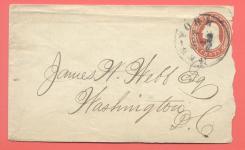 James W. Webb Esq
Washington
D.C